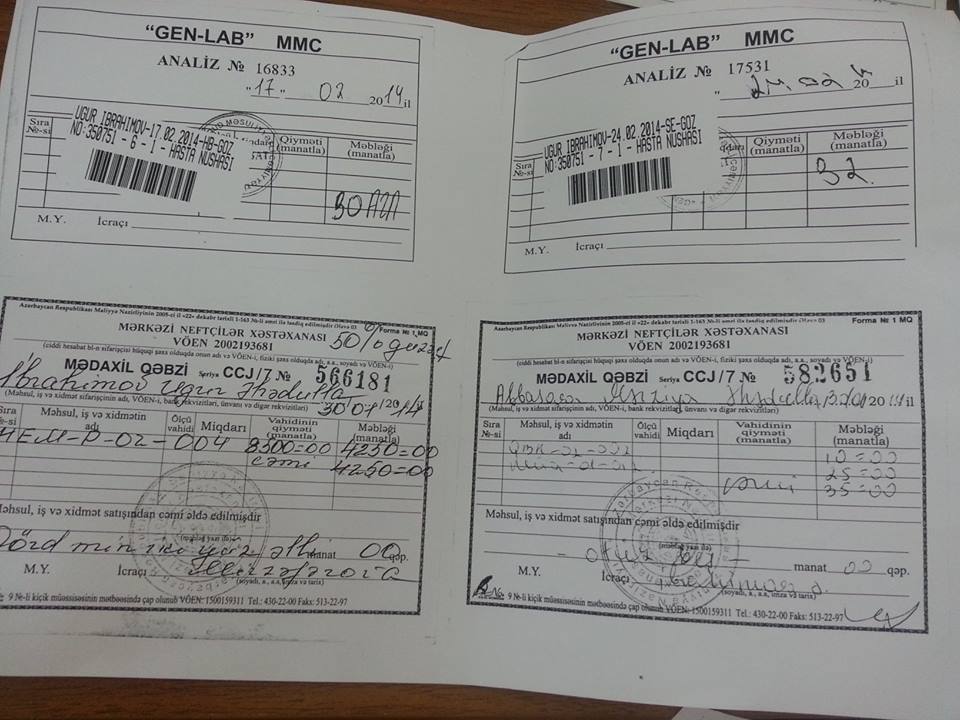 "GEN-LAB" MMC
ANALİZ № 16833
"17" 02 2014 il
UGUR IBRAHIMOV-17.02.2014-HB-GOZ
NO:350751 - 6 - 1 - HASTA NUSHASI
Sıra №-si
Qiyməti (manatla)
Məbləği (manatla)
30 AZN
M.Y. İcraçı
"GEN-LAB" MMC
ANALİZ № 17531
" 24 02 20 il
UGUR IBRAHIMOV-24.02.2014-SE-GOZ
NO:350751 - 7 - 1 - HASTA NUSHASI
Sıra №-si
Qiyməti (manatla)
Məbləği (manatla)
32
M.Y. İcraçı
Azərbaycan Respublikası Maliyyə Nazirliyinin 2005-ci il «22» dekabr tarixli 1-163 №-li əmri ilə təsdiq edilmişdir (Əlavə 03) Forma № 1 MQ
MƏRKƏZİ NEFTÇİLƏR XƏSTƏXANASI
VÖEN 2002193681
(ciddi hesabat bl-n sifarişçisi hüquqi şəxs olduqda onun adı və VÖEN-i, fiziki şəxs olduqda adı, a.a., soyadı və VÖEN-i)
MƏDAXİL QƏBZİ Seriya CCJ/7 № 566181
İbrahimov Uğur
(Məhsul, iş və xidmət sifarişçisinin adı, VÖEN-i, bank rekvizitləri, ünvanı və digər rekvizitləri)
Sıra №-si
Məhsul, iş və xidmətin adı
Ölçü vahidi
Miqdarı
Vahidinin qiyməti (manatla)
Məbləği (manatla)
02-004 8500=00 4250=00
cəmi 4250=00
Məhsul, iş və xidmət satışından cəmi əldə edilmişdir
(məbləğ yazı ilə)
Dörd min iki yüz əlli manat 00 qəp.
M.Y. İcraçı
(soyadı, a., a.a, imza və tarix)
9 №-li kiçik müəssisəsinin mətbəəsində çap olunub VÖEN: 1500159311 Tel.: 430-22-00 Faks: 513-22-97
Azərbaycan Respublikası Maliyyə Nazirliyinin 2005-ci il «22» dekabr tarixli 1-163 №-li əmri ilə təsdiq edilmişdir (Əlavə 03) Forma № 1 MQ
MƏRKƏZİ NEFTÇİLƏR XƏSTƏXANASI
VÖEN 2002193681
(ciddi hesabat bl-n sifarişçisi hüquqi şəxs olduqda onun adı və VÖEN-i, fiziki şəxs olduqda adı, a.a., soyadı və VÖEN-i)
MƏDAXİL QƏBZİ Seriya CCJ/7 № 582651
(Məhsul, iş və xidmət sifarişçisinin adı, VÖEN-i, bank rekvizitləri, ünvanı və digər rekvizitləri)
Sıra №-si
Məhsul, iş və xidmətin adı
Ölçü vahidi
Miqdarı
Vahidinin qiyməti (manatla)
Məbləği (manatla)
10=00
25=00
cəmi 35=00
Məhsul, iş və xidmət satışından cəmi əldə edilmişdir
(məbləğ yazı ilə)
- otuz beş - manat 00 qəp.
M.Y. İcraçı
(soyadı, a., a.a, imza və tarix)
9 №-li kiçik müəssisəsinin mətbəəsində çap olunub VÖEN: 1500159311 Tel.: 430-22-00 Faks: 513-22-97